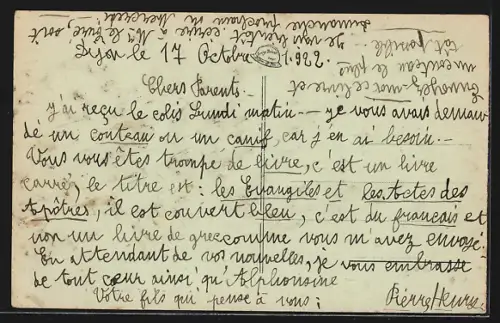 Dijon le 17 Octobre 1.922.
Chers Parents.
J'ai reçu le colis Lundi matin — je vous avais deman
dé un couteau ou un canif, car j'en ai besoin.-
Vous vous êtes trompé de livre, c'est un livre
carré, le titre est: les Evangiles et les Actes des
Apôtres, il est couvert bleu, c'est du français et
non un livre de grec comme vous m'avez envoyé.
En attendant de vos nouvelles, je vous embrasse
de tout cœur ainsi qu'Alphonsine
Votre fils qui pense à vous:
Pierre Henry
Envoyez-moi ce livre et
un couteau le plus
tôt possible.
Je vais bientôt écrire à Mr le Curé, soit
Dimanche prochain ou Mercredi